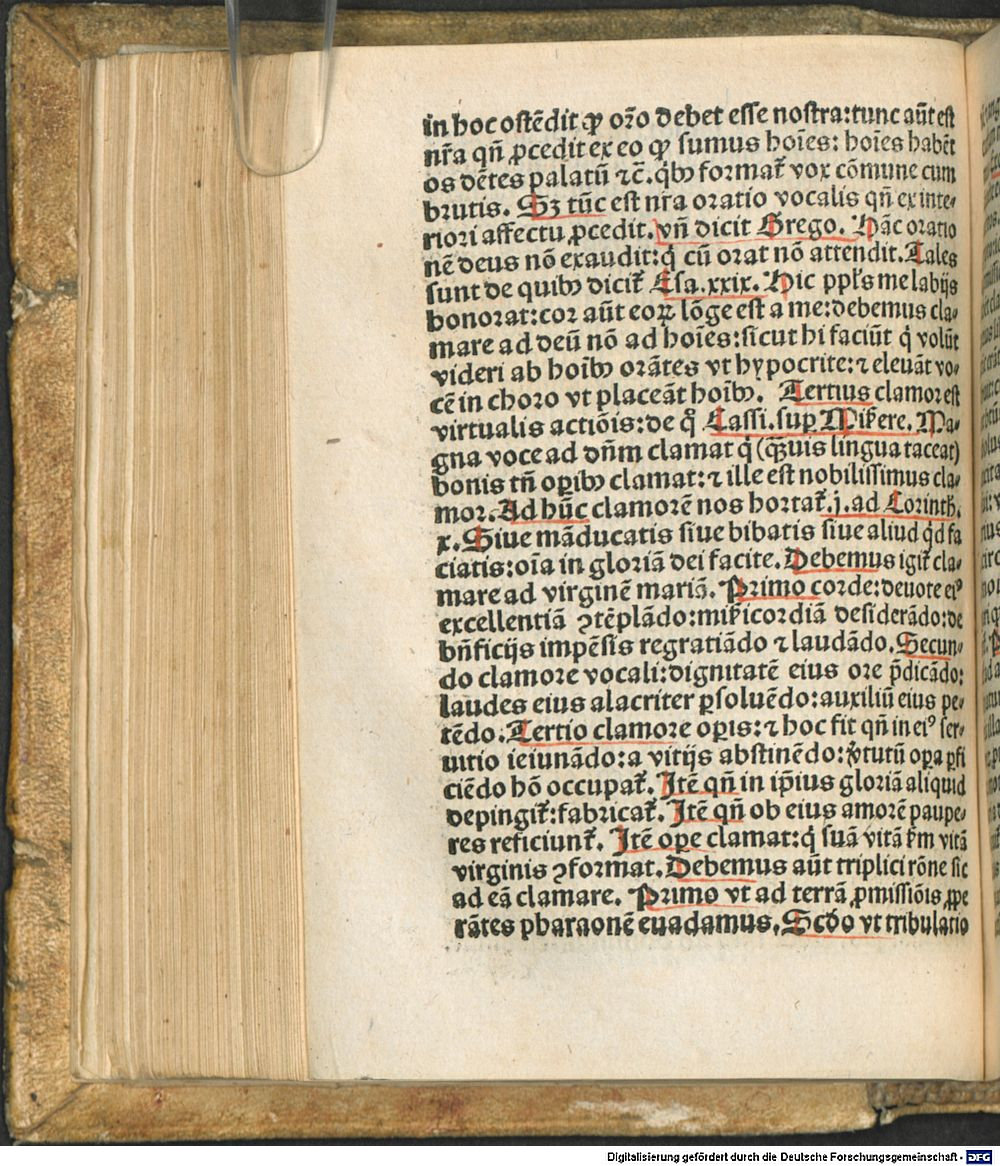 in hoc ostēdit ꝙ or̄o debet esse nostra: tunc aūt est
nr̄a qn̄ ꝓcedit ex eo ꝙ sumus hoīes: hoīes habēt
os dētes palatū ⁊c̄. qͥbꝫ format̄ vox cōmune cum
brutis. Sꝫ tūc est nr̄a oratio vocalis qn̄ ex inte⸗
riori affectu ꝓcedit. vn̄ dicit Grego. Hāc oratio
nē deus nō exaudit: qͥ cū orat nō attendit. Tales
sunt de quibꝫ dicit̄ Esa. xxix. Hic ppl̄s me labijs
honorat: cor aūt eoꝝ lōge est a me: debemus cla⸗
mare ad deū nō ad hoīes: sicut hi faciūt qͥ volūt
videri ab hoībꝫ orātes vt hypocrite: ⁊ eleuāt vo⸗
cē in choro vt placeāt hoībꝫ. Tertius clamor est
virtualis actiōis: de qͦ Cassi. suꝑ Mis̄ere. Ma⸗
gna voce ad dn̄m clamat qͥ (qͣꝫuis lingua taceat)
bonis tn̄ oꝑibꝫ clamat: ⁊ ille est nobilissimus cla⸗
mor. Ad hūc clamorē nos hortat̄. j. ad Corinth.
x. Siue māducatis siue bibatis siue aliud qͥd fa
ciatis: oīa in gloriā dei facite. Debemus igit̄ cla⸗
mare ad virginē mariā. Primo corde: deuote eiꝰ
excellentiā ꝯtēplādo: mis̄icordiā desiderādo: de
bn̄ficijs impēsis regratiādo ⁊ laudādo. Secun⸗
do clamore vocali: dignitatē eius ore p̄dicādo:
laudes eius alacriter ꝑsoluēdo: auxiliū eius pe⸗
tēdo. Tertio clamore oꝑis: ⁊ hoc fit qn̄ in eiꝰ ser⸗
uitio ieiunādo: a vitijs abstinēdo: v̓tutū oꝑa ꝑfi
ciēdo hō occupat̄. Itē qn̄ in ip̄ius gloriā aliquid
depingit̄: fabricat̄. Itē qn̄ ob eius amorē paupe⸗
res reficiunt̄. Itē oꝑe clamat: qͥ suā vitā ẜm vitā
virginis ꝯformat. Debemus aūt triplici rōne sic
ad eā clamare. Primo vt ad terrā ꝓmissiōis ꝓpe
rātes pharaonē euadamus. Scd̄o vt tribulatio
Digitalisierung gefördert durch die Deutsche Forschungsgemeinschaft - DFG